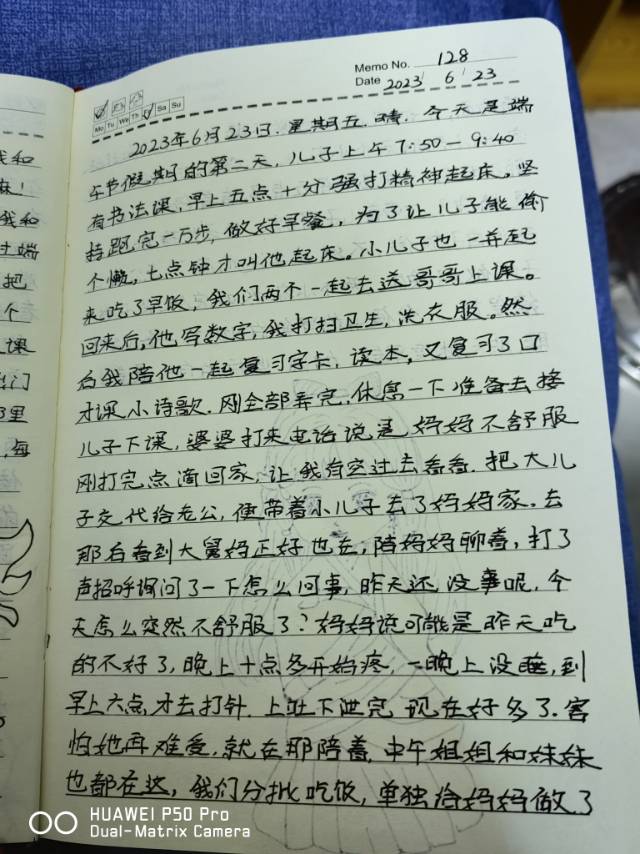 Memo No. 128
Date 2023 6 23
Mo Tu We Th Sa Su
2023年6月23日.星期五.晴.今天是端
午节假期的第二天,儿子上午7:50-9:40
有书法课,早上五点十分强打精神起床。坚
持跑完一万步,做好早餐,为了让儿子能偷
个懒,七点钟才叫他起床。小儿子也一并起
来吃了早饭,我们两个一起去送哥哥上课。
回来后,他写数字,我打扫卫生,洗衣服。然
后我陪他一起复习字卡,读本,又复习了口
才课小诗歌.刚全部弄完,休息一下准备去接
儿子下课,婆婆打来电话说是妈妈不舒服
刚打完点滴回家,让我有空过去看看.把大儿
子交代给老公,便带着小儿子去了妈妈家.去
那后看到大舅妈正好也在,陪妈妈聊着,打了
声招呼询问了一下怎么回事,昨天还没事呢,今
天怎么突然不舒服了?妈妈说可能是昨天吃
的不好了,晚上十点多开始疼,一晚上没睡,到
早上六点,才去打针.上吐下泄完 现在好多了.害
怕她再难受,就在那陪着,中午姐姐和妹妹
也都在这,我们分批吃饭,单独给妈妈做了
我和
麻!
我和
过端
把
个
课
门
那里
,每
HUAWEI P50 Pro
Dual-Matrix Camera